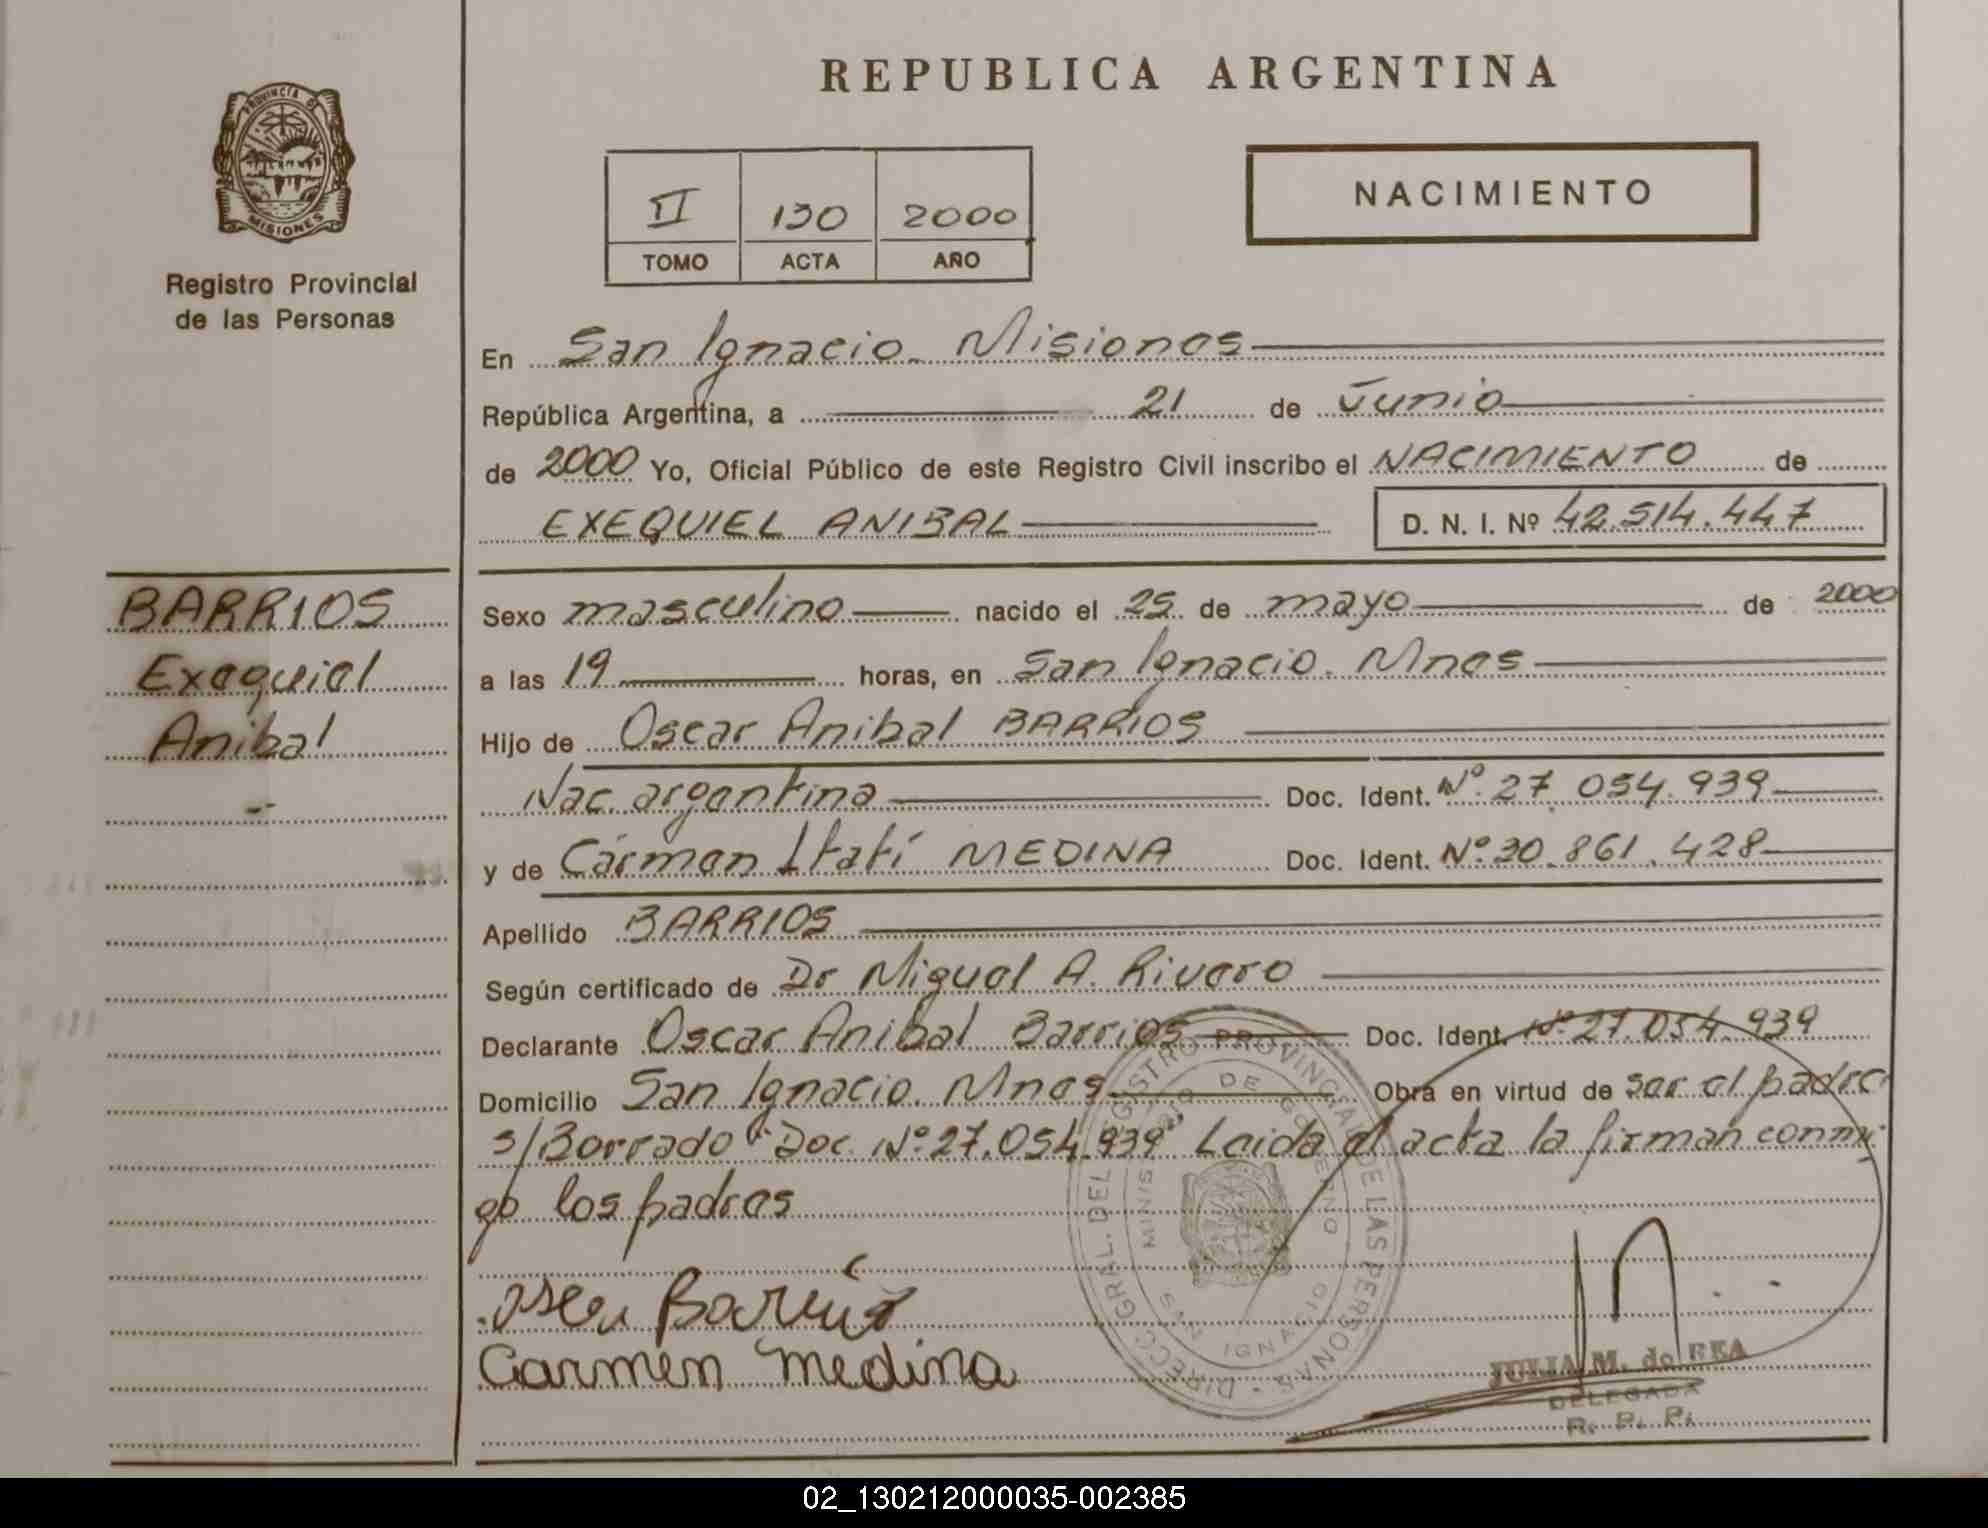 PROVINCIA DE
MISIONES
Registro Provincial
de las Personas
REPUBLICA ARGENTINA
II 130 2000
TOMO ACTA AÑO
NACIMIENTO
En San Ignacio. Misiones
República Argentina, a 21 de Junio
de 2000 Yo, Oficial Público de este Registro Civil inscribo el NACIMIENTO de
EXEQUIEL ANIBAL D. N. I. Nº 42.514.447
BARRIOS
Exequiel
Anibal
Sexo masculino nacido el 25 de mayo de 2000
a las 19 horas, en San Ignacio. Mnes
Hijo de Oscar Anibal BARRIOS
Nac. argentina Doc. Ident. Nº 27.054.939
y de Cármen Itatí MEDINA Doc. Ident. Nº 30.861.428
Apellido BARRIOS
Según certificado de Dr Miguel A. Rivero
Declarante Oscar Anibal Barrios Doc. Ident. Nº 27.054.939
Domicilio San Ignacio. Mnes Obra en virtud de ser el padre
s/Borrado "Doc. Nº 27.054.939" Leida el acta la firman conmi
go los padres
DIRECC. GRAL. DEL REGISTRO PROVINCIAL DE LAS PERSONAS
MINISTERIO DE GOBIERNO
SAN IGNACIO
Oscar Barrios
Carmen Medina
JULIA M. de REA
DELEGADA
R. P. P.
02_130212000035-002385